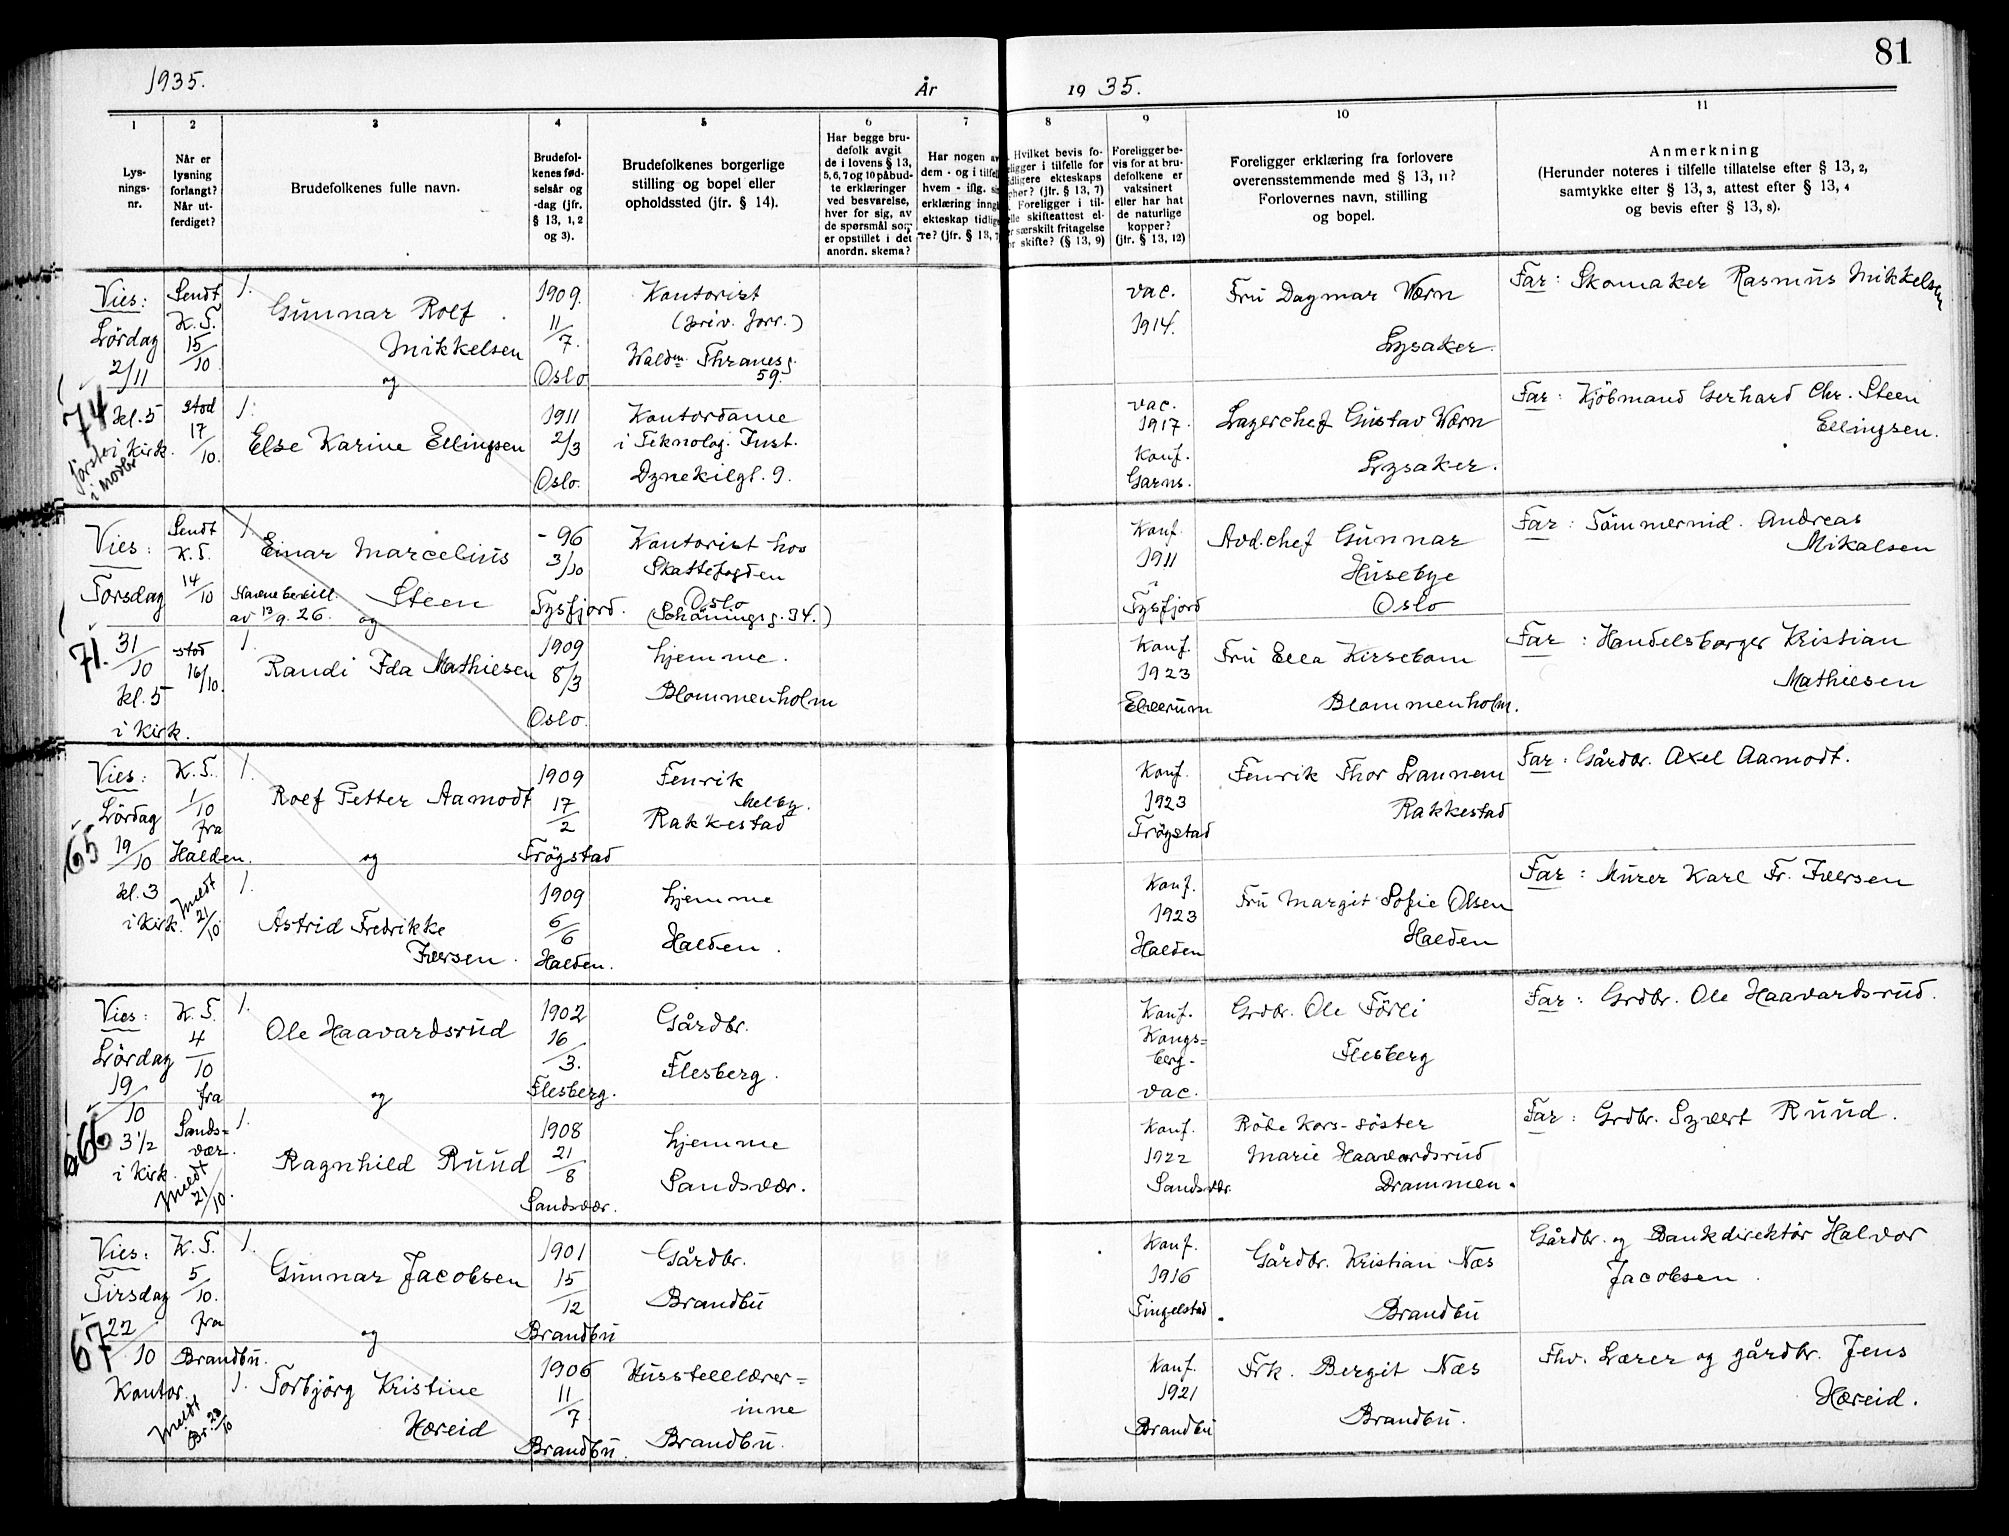 81
1935.
År
19 35.
1
2
3
4
5
6
7
8
9
10
11
Lys-
nings-
nr.
Når er
lysning
forlangt?
Når ut-
ferdiget?
Brudefolkenes fulle navn.
Brudefol-
kenes fød-
selsår og
-dag (jfr.
§ 13, 1, 2
og 3).
Brudefolkenes borgerlige
stilling og bopel eller
opholdssted (jfr. § 14).
Har begge bru-
defolk avgit
de i lovens § 13,
5, 6, 7 og 10 påbud-
te erklæringer
ved besvarelse,
hver for sig, av
de spørsmål som
er opstillet i det
anordn. skema?
Har nogen av
dem - og i tilfelle
hvem - iflg. si
erklæring inng
ekteskap tidlig
re? (jfr. § 13, 7
Hvilket bevis fo-
religger i tilfelle for
tidligere ekteskaps
ophør? (jfr. § 13, 7)
Foreligger i til-
felle skifteattest el-
ler særskilt fritagelse
for skifte? (§ 13, 9)
Foreligger be-
vis for at bru-
defolkene er
vaksinert
eller har hat
de naturlige
kopper?
(jfr. § 13, 12)
Foreligger erklæring fra forlovere
overensstemmende med § 13, 11?
Forlovernes navn, stilling
og bopel.
Anmerkning
(Herunder noteres i tilfelle tillatelse efter § 13, 2,
samtykke efter § 13, 3, attest efter § 13, 4
og bevis efter § 13, 8).
74
Vies:
Lördag
2/11
kl. 5
i Kirk.
Sendt
K. T.
15/10
stod
17/10.
1.
Gunnar Rolf
Mikkelsen
og
1909.
11/7.
Oslo
Kontorist
(priv. forr.)
Waldm. Thranesg.
59.
vac.
1914.
Fru Dagmar Wærn
Lysaker.
Far: Skomaker Rasmus Mikkelsen
1.
Else Karine Ellingsen
1911
2/3
Oslo.
Kontordame
i Teknolog. Inst.
Dynekilgt. 9.
vac.
1917.
Konf.
Garns.
Lagerchef Gustav Wærn
Lysaker.
Far: Kjöbmand Gerhard Chr. Steen
Ellingsen.
71.
Vies:
Torsdag
31/10
kl. 5
i Kirk.
Sendt
K. T.
14/10
stod
16/10.
1.
Einar Marcelius
Steen
av 13/9. 26.
og
- 96
3/10
Tysfjord.
Kontorist hos
Skattefogden
Oslo
(Schöningsg. 34.)
Konf.
1911
i
Tysfjord
Avd.chef Gunnar
Husebye
Oslo
Far: Tömmermd. Andreas
Mikalsen
1.
Randi Ida Mathiesen
1909
8/3
Oslo.
hjemme.
Blommenholm
Konf.
1923
Elverum
Fru Ella Kirsebom
Blommenholm.
Far: Handelsborger Kristian
Mathiesen
65
Vies:
Lördag
19/10
kl. 3
i Kirk.
K. T.
1/10
fra
Halden.
Meldt
21/10
1.
Rolf Petter Aamodt
og
1909
17/2
Trögstad
Fenrik
Melby.
Rakkestad
Konf.
1923
Trögstad
Fenrik Thor Lannem
Rakkestad
Far: Gårdbr. Axel Aamodt.
1.
Astrid Fredrikke
Iversen.
1909
6/6
Halden.
hjemme
Halden.
Konf.
1923
Halden
Fru Margit Sofie Olsen
Halden
Far: Murer Karl Fr. Iversen
66
Vies:
Lördag
19/10
3 1/2
i Kirk.
K. T.
4/10
fra
Sands-
vær.
Meldt
21/10.
1.
Ole Haavardsrud
og
1902
16/3.
Flesberg.
Gårdbr.
Flesberg.
Konf.
Kongs-
berg.
vac.
Grdbr. Ole Förli
Flesberg
Far: Grdbr. Ole Haavardsrud.
1.
Ragnhild Ruud
1908
21/8
Sandsvær.
hjemme
Sandsvær.
Konf.
1922
Sandsvær.
Röde Kors-söster
Marie Haavardsrud
Drammen.
Far: Grdbr. Syvert Ruud.
67
Vies:
Tirsdag
22/10
Kontor.
K. T.
5/10.
fra
Brandbu.
Meldt
Br. 23/10
1.
Gunnar Jacobsen
og
1901
15/12
Brandbu
Gårdbr.
Brandbu
Konf.
1916
Tingelstad.
Gårdbr. Kristian Næs
Brandbu
Gårdbr. og Bankdirektör Halvor
Jacobsen.
1.
Torbjörg Kristine
Hæreid
1906
11/7
Brandbu.
Husstelllærer-
inne
Brandbu.
Konf.
1921
Brandbu
Frk. Bergit Næs
Brandbu.
Fhv. Lærer og gårdbr. Jens
Hæreid.